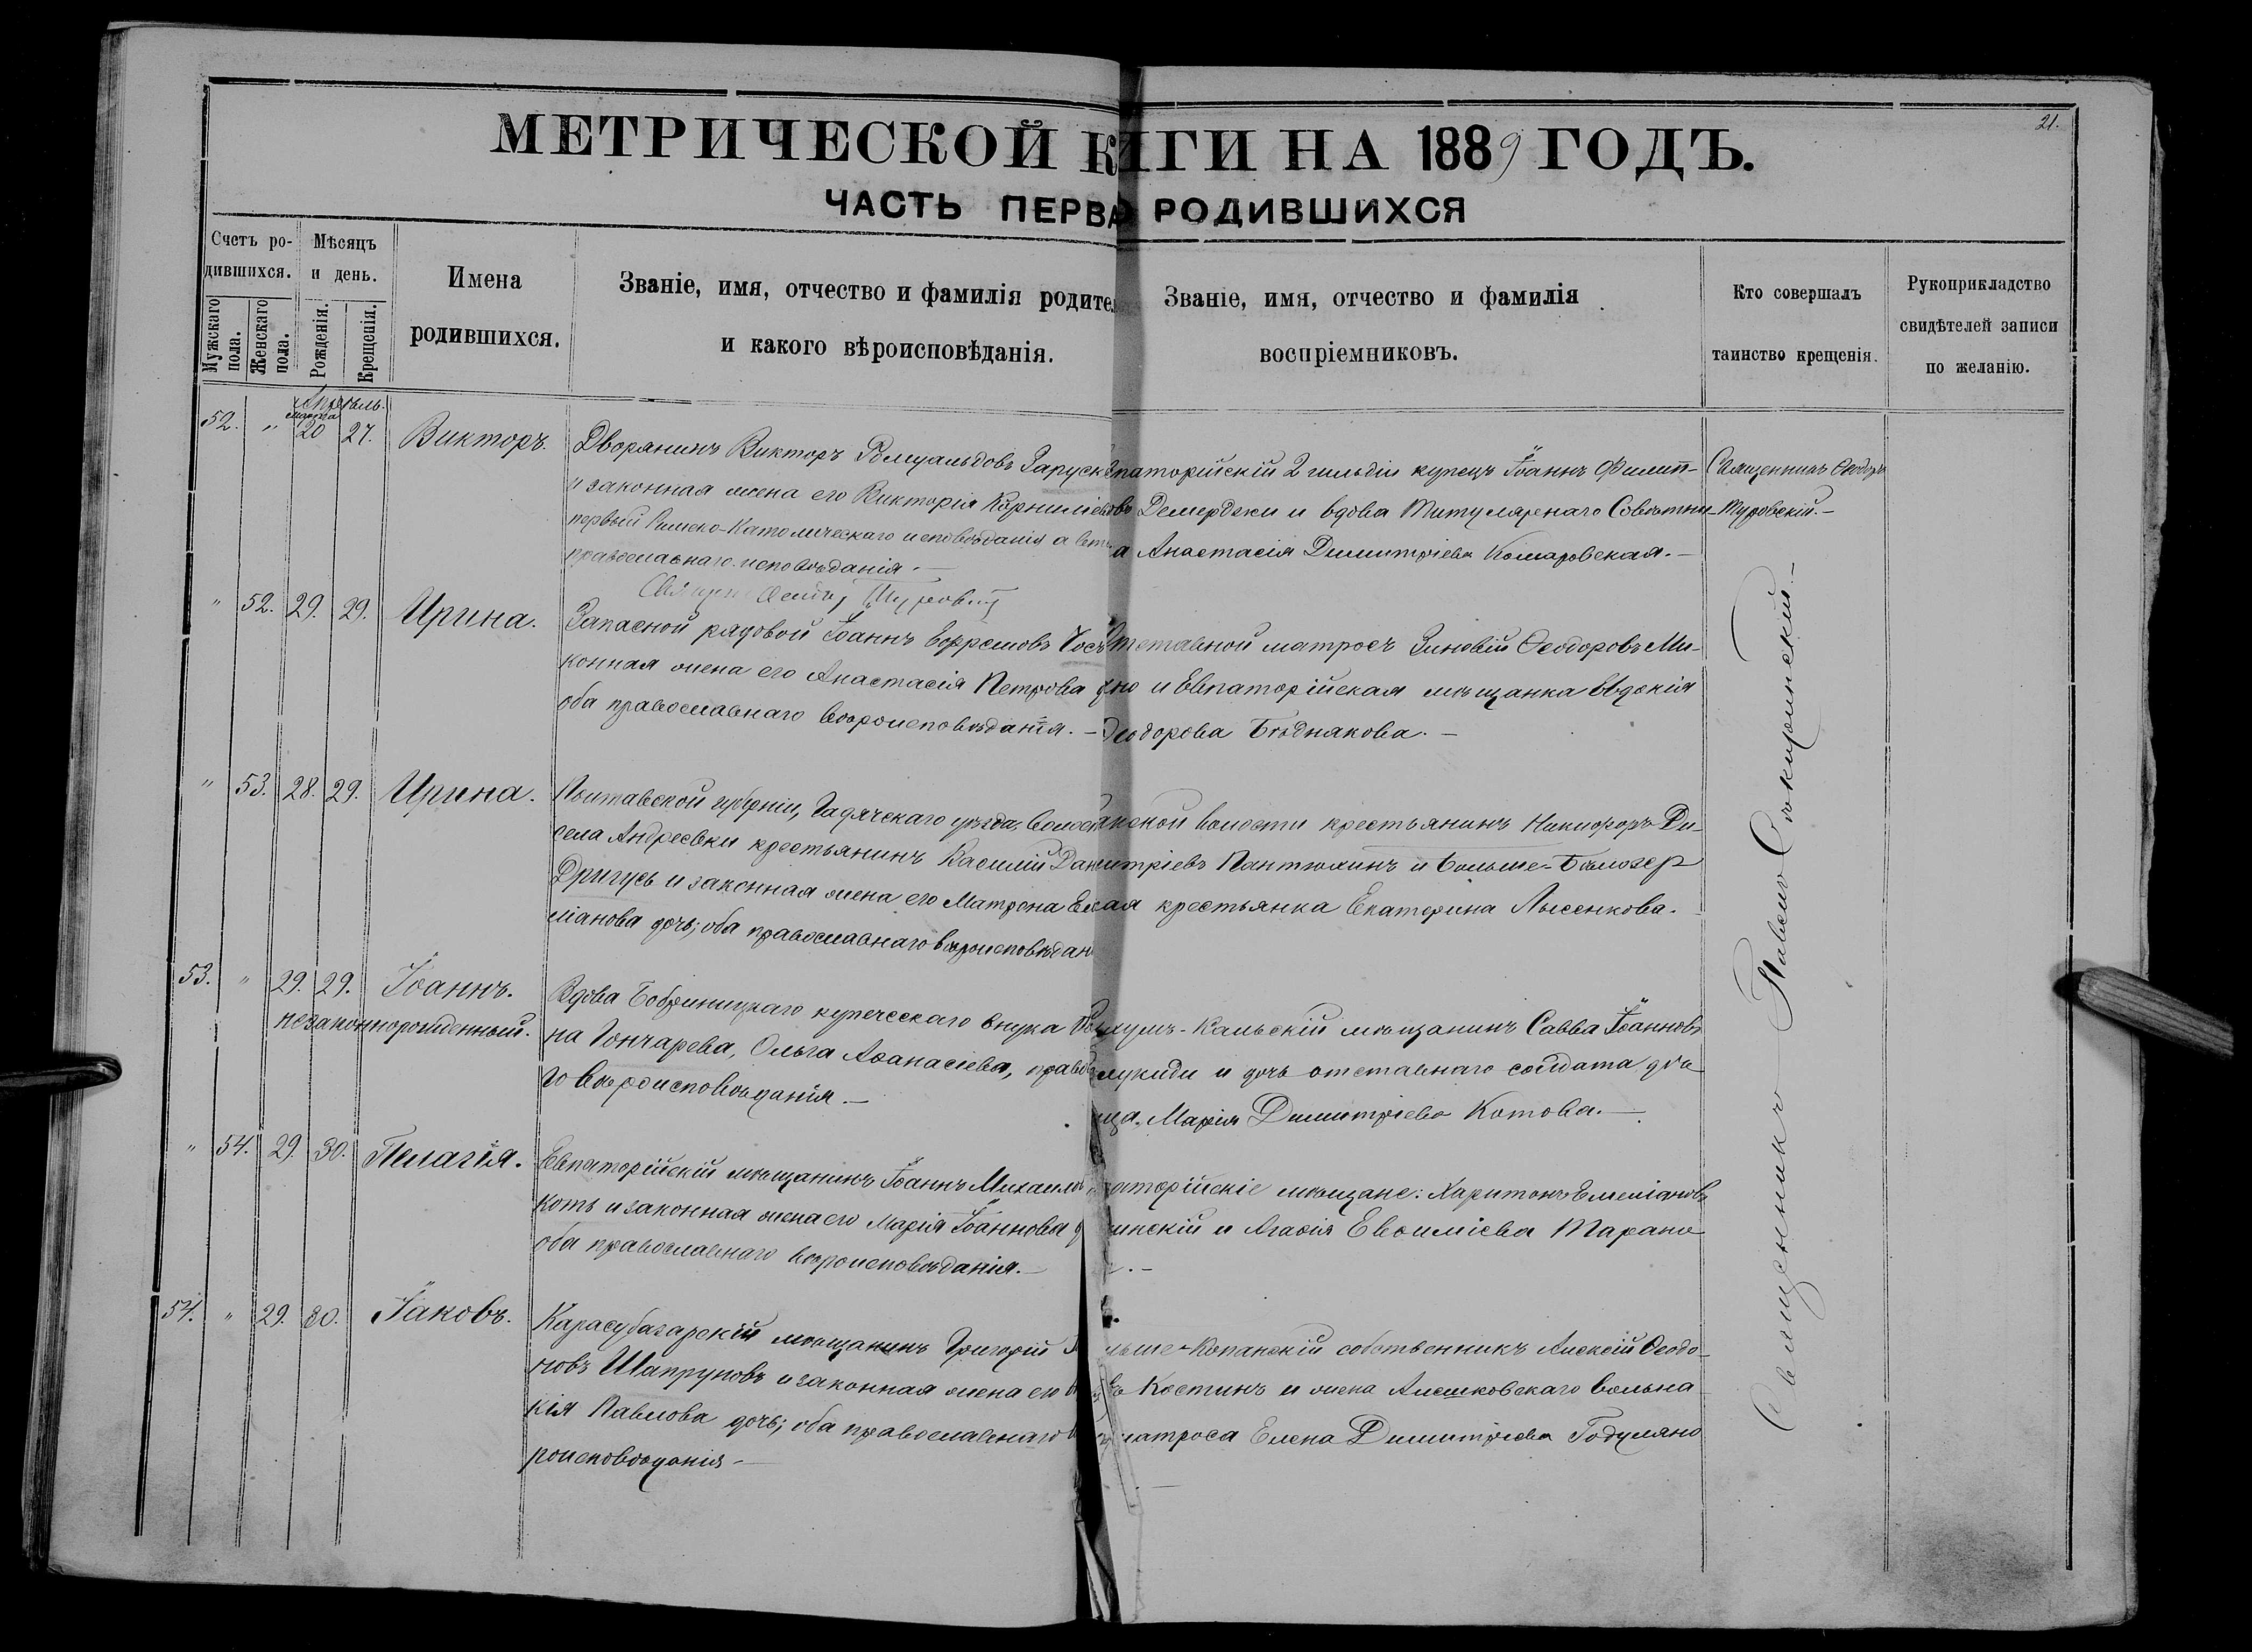 21.
МЕТРИЧЕСКОЙ К ИГИ НА 1889 ГОДЪ.
ЧАСТЬ ПЕРВА РОДИВШИХСЯ
Счетъ ро-
дившихся.
Мужскаго пола.
Женскаго пола.
Мѣсяцъ
и день.
Рожденія.
Крещенія.
Имена
родившихся.
Званіе, имя, отчество и фамилія родите
и какого вѣроисповѣданія.
Званіе, имя, отчество и фамилія
воспріемниковъ.
Кто совершалъ
таинство крещенія.
Рукоприкладство
свидѣтелей записи
по желанію.
Апрѣль.
марта
52. " 20 27. Викторъ.
Дворянинъ Викторъ Ромуальдовъ Заруск
и законная жена его Викторія Корниліева
первый Римско-Католическаго исповѣданія а
православнаго исповѣданія.—
паторійскій 2 гильдіи купецъ Іоаннъ Филип-
овъ Демерджи и вдова Титулярнаго Совѣтни-
а Анастасія Димитріева Комаровская.—
Священникъ Ѳеодоръ
Туровскій.—
" 52. 29. 29. Ирина.
Запасной рядовой Іоаннъ Ефремовъ
конная жена его Анастасія Петрова
оба православнаго вѣроисповѣданія.—
тставной матросъ Зиновій Ѳеодоровъ Ми-
но и Евпаторійская мѣщанка Евдокія
еодорова Бѣднякова.—
" 53. 28. 29. Ирина.
Полтавской губерніи, Гадячскаго уѣзда,
села Андреевки крестьянинъ Василій Дан
Дригусь и законная жена его Матрона Ем
ліанова дочь; оба православнаго вѣроисповѣдан
ской волости крестьянинъ Никифоръ Ди-
митріевъ Пантюхинъ и Больше-Бѣлозер
ская крестьянка Екатерина Лысенкова.
53. " 29. 29. Іоаннъ.
незаконнорожденный.
Вдова Бобринецкаго купеческаго внука
на Гончарева, Ольга Аѳанасіева, право
го вѣроисповѣданія.—
Кальскій мѣщанинъ Савва Іоанновъ
лукиди и дочь отставнаго солдата дѣв
ица, Марія Димитріева Котова.—
" 54. 29. 30. Пелагія.
Евпаторійскій мѣщанинъ Іоаннъ Михаилов
Коть и законная жена его Марія Іоаннова
оба православнаго вѣроисповѣданія.—
аторійскіе мѣщане: Харитонъ Емеліановъ
инскій и Агафія Евѳиміева Тарано
54. " 29. 30. Іаковъ.
Карасубазарскій мѣщанинъ Григорій
новъ Шапруновъ и законная жена его
кія Павлова дочь; оба православнаго
роисповѣданія—
льше-Копанскій собственникъ Алексій Ѳеодо-
въ Костинъ и жена Алешковскаго вольна
матроса Елена Димитріева Годуляно
Священникъ Павелъ